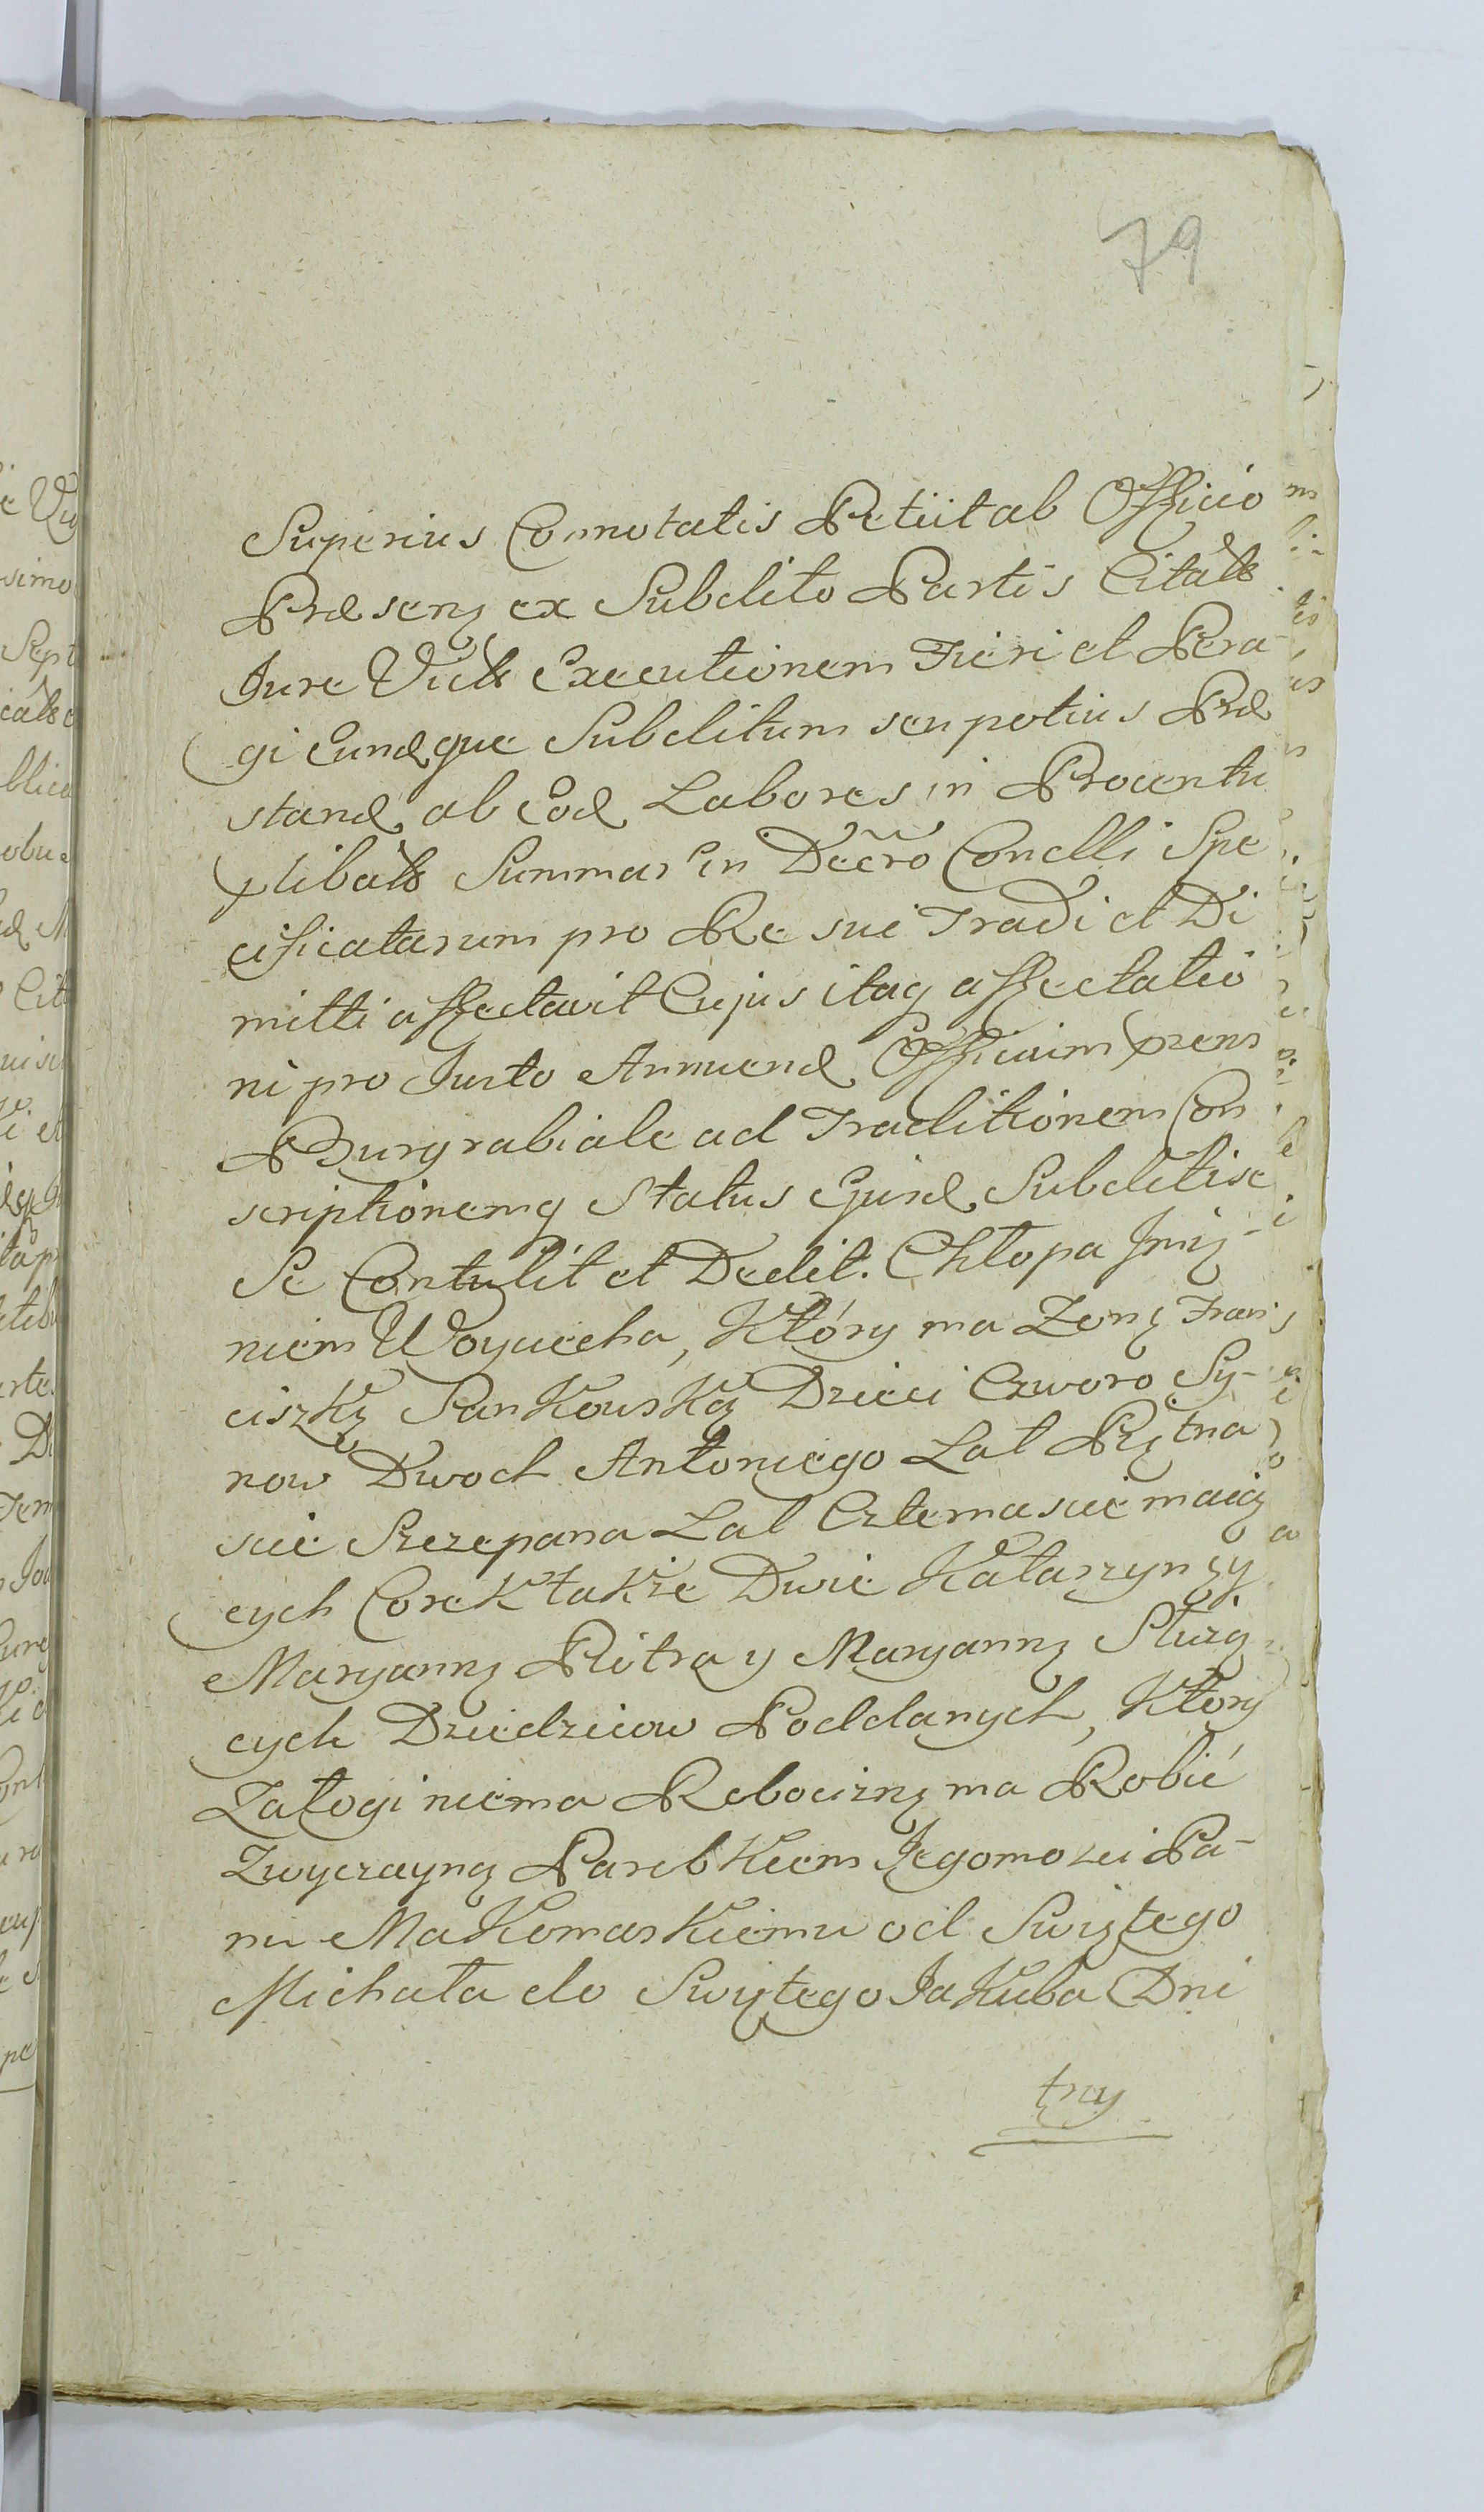 79
Superius Connotatis Petiit ab Officio
Præsenq ex Subdito Partis Citatæ
Jure Victæ Executionem Fieri et Pera-
gi Eundque Subditum seu potius Præ
stand ab Eod Labores in Procentu
Summar in Decro Conclli Spe
cificatarum pro Re sui Tradi et Di
mitti affectavit Cujus itaq affectatio
ni pro Justo Annuend Officium prens
Burgrabiale ad Traditionem Con
scriptionemq Status Ejusd Subditi se
Se Contulit et Dedit. Chłopa Jmię-
niem Woyciecha, Który ma Zonę Fran
ciszkę Sankowską Dzieci Czworo Sy-
now Dwoch Antoniego Lat Piętna
scie Szczepana Lat Czternascie maią
cych Corek także Dwie Katarzynę y
Maryannę Piotra y Maryannę Służą
cych Dziedzicow Poddanych, Który
Załogi niema Robociznę ma Robić
Zwyczayną Parobkiem Jegomosci Pa-
nu Makomaskiemu od Swiętego
Michała do Swiętego Jakuba Dni
try